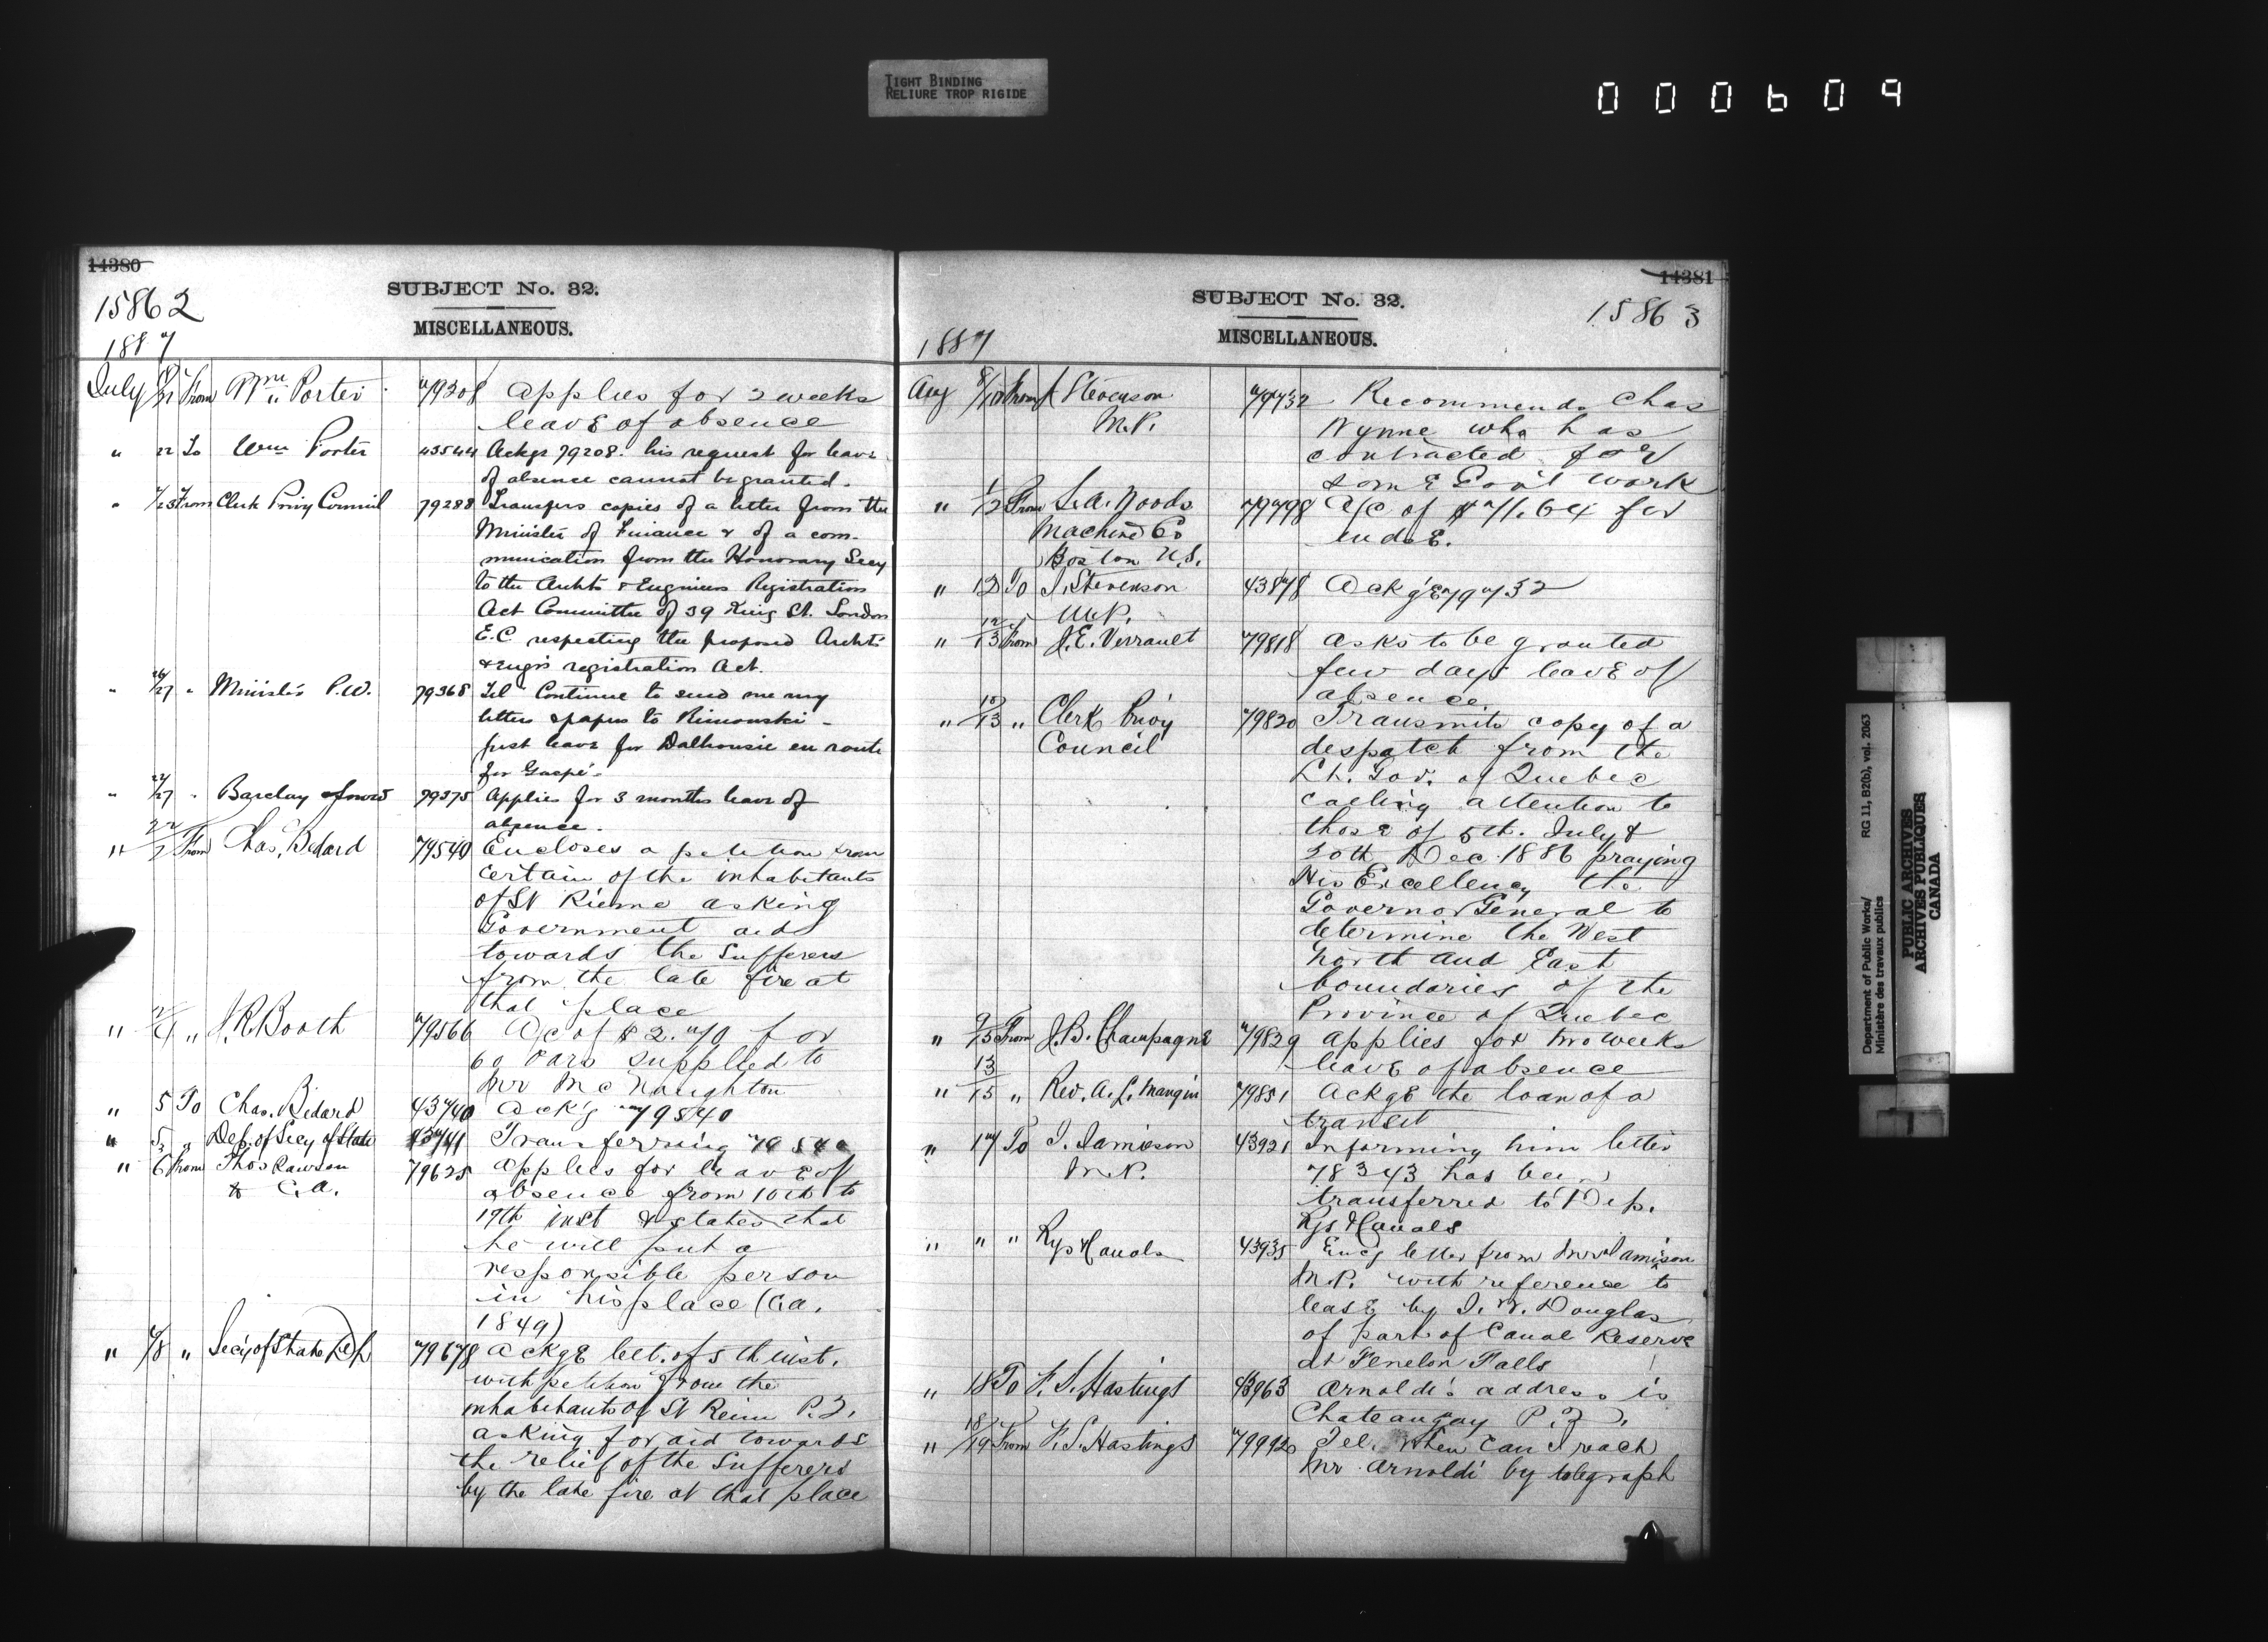 TIGHT BINDING
RELIURE TROP RIGIDE
000609
14380
15862
SUBJECT No. 32.
MISCELLANEOUS.
1887
July 21 From Wm Porter 79208 Applies for 2 weeks
leave of absence
" 22 To Wm Porter 43544 Ackgs 79208. his request for leave
of absence cannot be granted.
" 23 From Clerk Privy Council 79288 Transfers copies of a letter from the
Minister of Finance & of a com-
munication from the Honorary Secy
to the Archts & Engineers Registration
Act Committee of 39 King St. London
E.C. respecting the proposed Archts
& Engrs registration Act.
" 26/27 " Minister P.W. 79368 Tel Continue to send me my
letters & papers to Rimouski -
just leave for Dalhousie en route
for Gaspé -
" 27 " Barclay 79375 Applies for 3 months leave of
absence.
" From Chas. Bedard 79540 Encloses a petition from
certain of the inhabitants
of St asking
Government aid
towards the Sufferers
from the late fire at
that place
" 4 " J. R. Booth 79566 A/c of $2.70 for
60 oars supplied to
Mr McNaughton
" 5 To Chas. Bedard 43740 Ack'g 79540
" 5 " Dep. of Secy of State 43741 Transferring 79540
" 6 From Thos Rawson 79625 applies for leave of
C.A. absence from 10th to
19th inst & states that
he will put a
responsible person
in his place (Ca.
1849)
" 8 " Secy of State Dep 79678 Ackge let. of 5th inst.
with petition from the
inhabitants of St P.Q.
asking for aid towards
the relief of the Sufferers
by the late fire at that place
14381
SUBJECT No. 32.
15863
MISCELLANEOUS.
1887
Aug 8/10 From J Stevenson 79732 Recommends Chas
M.P. Wynne who has
contracted for
some Gov't work
" 1/12 From S. A. Woods 79798 A/c of $71.64 for
Machine Co
Boston U.S.
" 12 To J. Stevenson 43878 Ack'ge 79732
M.P.
" 12/13 From J. E. Verrault 79818 asks to be granted
few days leave of
absence.
" 10/13 " Clerk Privy 79820 Transmits copy of a
Council despatch from the
Lt. Gov. of Quebec
calling attention to
those of 5th. July &
30th Dec 1886 praying
His Excellency the
Governor General to
determine the West
North and East
boundaries of the
Province of Quebec
" 9/15 From J. B. Champagne 79829 applies for two weeks
leave of absence
" 13/15 " Rev. A. L. Mangin 79851 Ackge the loan of a
transit
" 17 To J. Jamieson 43921 Informing him letter
M.P. 78343 has been
transferred to Dep.
Rys & Canals
" " " Rys & Canals 43935 Enc'g letter from Mr Jamison
M.P. with reference to
lease by J. W. Douglas
of part of Canal Reserve
at Fenelon Falls
" 18 To F. S. Hastings 43963 Arnoldi's address is
Chateaugay P.Q.
" 18/19 From F. S. Hastings 79992 Tel. When can I reach
Mr Arnoldi by telegraph
Department of Public Works/
Ministère des travaux publics
RG 11, B2(b), vol. 2063
PUBLIC ARCHIVES
ARCHIVES PUBLIQUES
CANADA